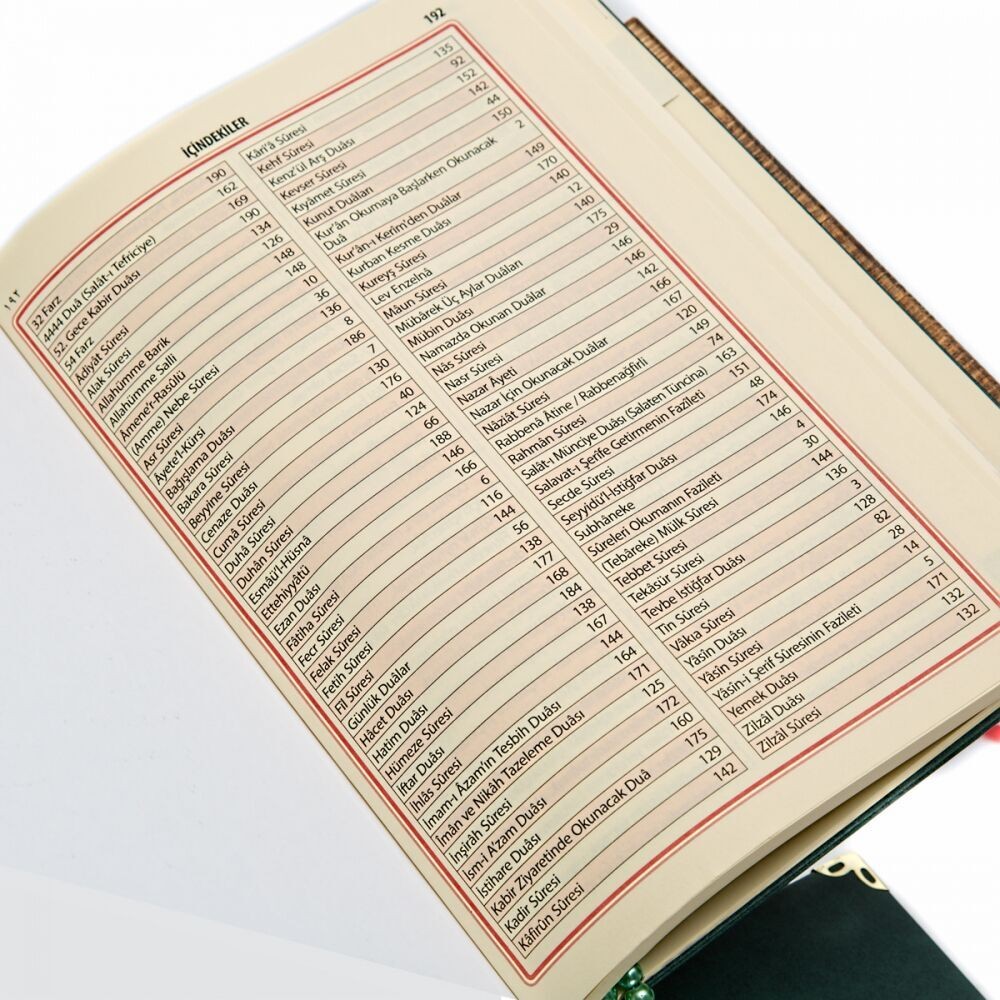 192
١٩٢
İÇİNDEKİLER
32 Farz 190
4444 Duâ (Salât-ı Tefriciye) 162
52. Gece Kabir Duâsı 169
54 Farz 190
Âdiyât Sûresi 134
Alak Sûresi 126
Allahümme Barik 148
Allahümme Salli 148
Âmene'r-Rasûlü 10
(Amme) Nebe Sûresi 36
Asr Sûresi 136
Âyete'l-Kürsi 8
Bağışlama Duâsı 186
Bakara Sûresi 7
Beyyine Sûresi 130
Cenaze Duâsı 176
Cumâ Sûresi 40
Duhâ Sûresi 124
Duhân Sûresi 66
Esmâü'l-Hüsnâ 188
Ettehiyyâtü 146
Ezan Duâsı 166
Fâtiha Sûresi 6
Fecr Sûresi 116
Felak Sûresi 144
Fetih Sûresi 56
Fil Sûresi 138
Günlük Duâlar 177
Hâcet Duâsı 168
Hatim Duâsı 184
Hümeze Sûresi 138
İftar Duâsı 167
İhlâs Sûresi 144
İmam-ı Âzam'ın Tesbih Duâsı 164
İmân ve Nikâh Tazeleme Duâsı 171
İnşirâh Sûresi 125
İsm-i A'zam Duâsı 172
İstihare Duâsı 160
Kabir Ziyaretinde Okunacak Duâ 175
Kadir Sûresi 129
Kâfirûn Sûresi 142
Kâri'â Sûresi 135
Kehf Sûresi 92
Kenz'ül Arş Duâsı 152
Kevser Sûresi 142
Kıyâmet Sûresi 44
Kunut Duâları 150
Kur'ân Okumaya Başlarken Okunacak 2
Duâ
Kur'ân-ı Kerîm'den Duâlar 149
Kurban Kesme Duâsı 170
Kureyş Sûresi 140
Lev Enzelnâ 12
Mâun Sûresi 140
Mübârek Üç Aylar Duâları 175
Mübin Duâsı 29
Namazda Okunan Duâlar 146
Nâs Sûresi 146
Nasr Sûresi 142
Nazar Âyeti 166
Nazar İçin Okunacak Duâlar 167
Nâziât Sûresi 120
Rabbenâ Âtine / Rabbenağfirli 149
Rahmân Sûresi 74
Salât-ı Münciye Duâsı (Salaten Tüncina) 163
Salavat-ı Şerife Getirmenin Fazîleti 151
Secde Sûresi 48
Seyyidü'l-İstiğfar Duâsı 174
Subhâneke 146
Sûreleri Okumanın Fazîleti 4
(Tebâreke) Mülk Sûresi 30
Tebbet Sûresi 144
Tekâsür Sûresi 136
Tevbe İstiğfar Duâsı 3
Tin Sûresi 128
Vâkıa Sûresi 82
Yâsin Duâsı 28
Yâsin Sûresi 14
Yâsin-i Şerif Sûresinin Fazîleti 5
Yemek Duâsı 171
Zilzâl Duâsı 132
Zilzâl Sûresi 132